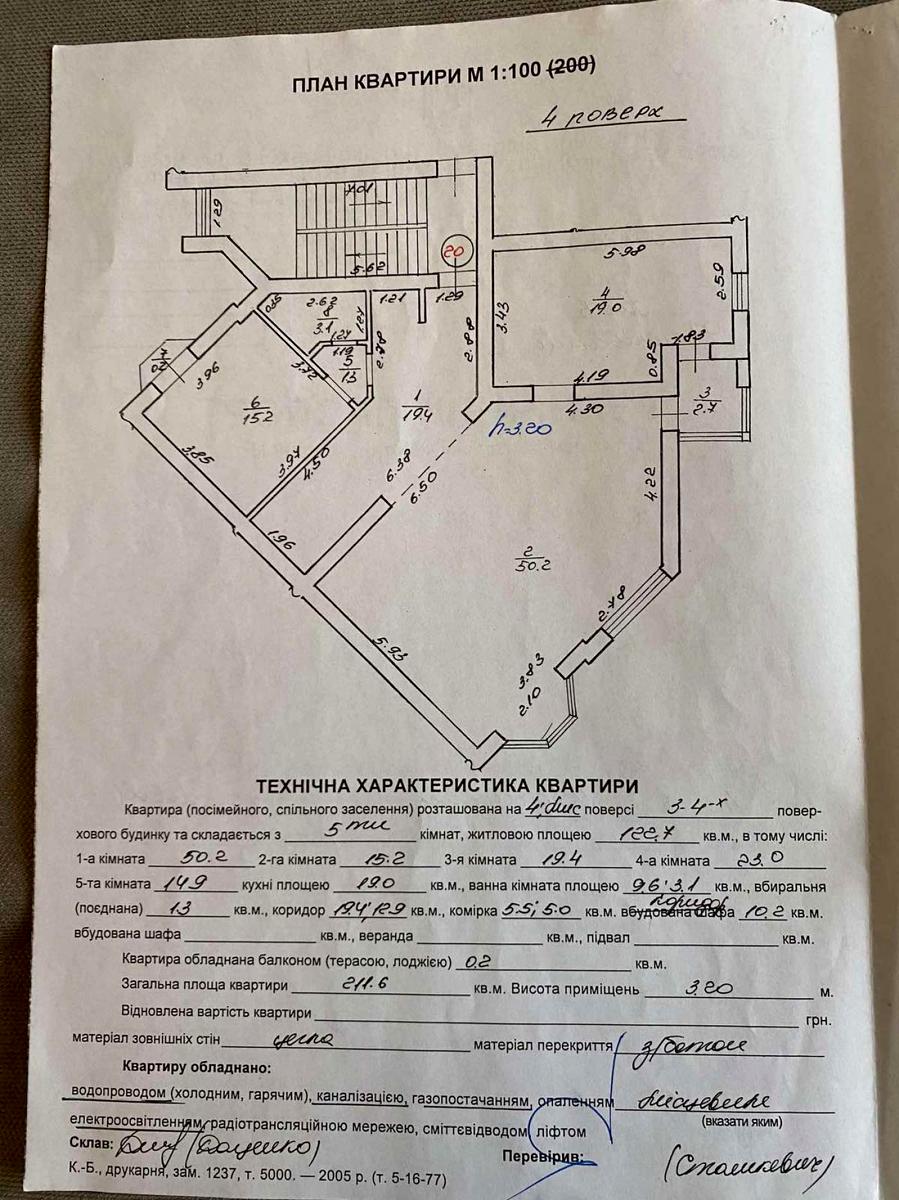 ПЛАН КВАРТИРИ М 1:100 (200)
4 поверх
7.01
1.29
5.62
20
5.98
2.59
4
19.0
3.43
2.62
8
3.1
1.27
1.21
1.29
0.85
1.83
7
0.2
3.96
3.72
1.27
1.19
5
1.3
2.78
2.88
4.19
4.30
3
2.7
6
15.2
1
19.4
h=3.20
3.85
3.97
4.50
6.38
6.50
4.22
1.96
2
50.2
2.78
5.93
3.83
2.10
ТЕХНІЧНА ХАРАКТЕРИСТИКА КВАРТИРИ
Квартира (посімейного, спільного заселення) розташована на 4, поверсі 3-4-х повер-
хового будинку та складається з 5ти кімнат, житловою площею 122,7 кв.м., в тому числі:
1-а кімната 50.2 2-га кімната 15.2 3-я кімната 19.4 4-а кімната 23.0
5-та кімната 14.9 кухні площею 19.0 кв.м., ванна кімната площею 9.6; 3.1 кв.м., вбиральня
(поєднана) 1.3 кв.м., коридор 19.4; 12.9 кв.м., комірка 5.5; 5.0 кв.м. вбудована шафа коридор 10.2 кв.м.
вбудована шафа кв.м., веранда кв.м., підвал кв.м.
Квартира обладнана балконом (терасою, лоджією) 0.2 кв.м.
Загальна площа квартири 211.6 кв.м. Висота приміщень 3.20 м.
Відновлена вартість квартири грн.
матеріал зовнішніх стін цегла матеріал перекриття з/бетон
Квартиру обладнано:
водопроводом (холодним, гарячим), каналізацією, газопостачанням, опаленням місцевим
(вказати яким)
електроосвітленням, радіотрансляційною мережею, сміттєвідводом, ліфтом
Склав: Перевірив:
К.-Б., друкарня, зам. 1237, т. 5000. — 2005 р. (т. 5-16-77)